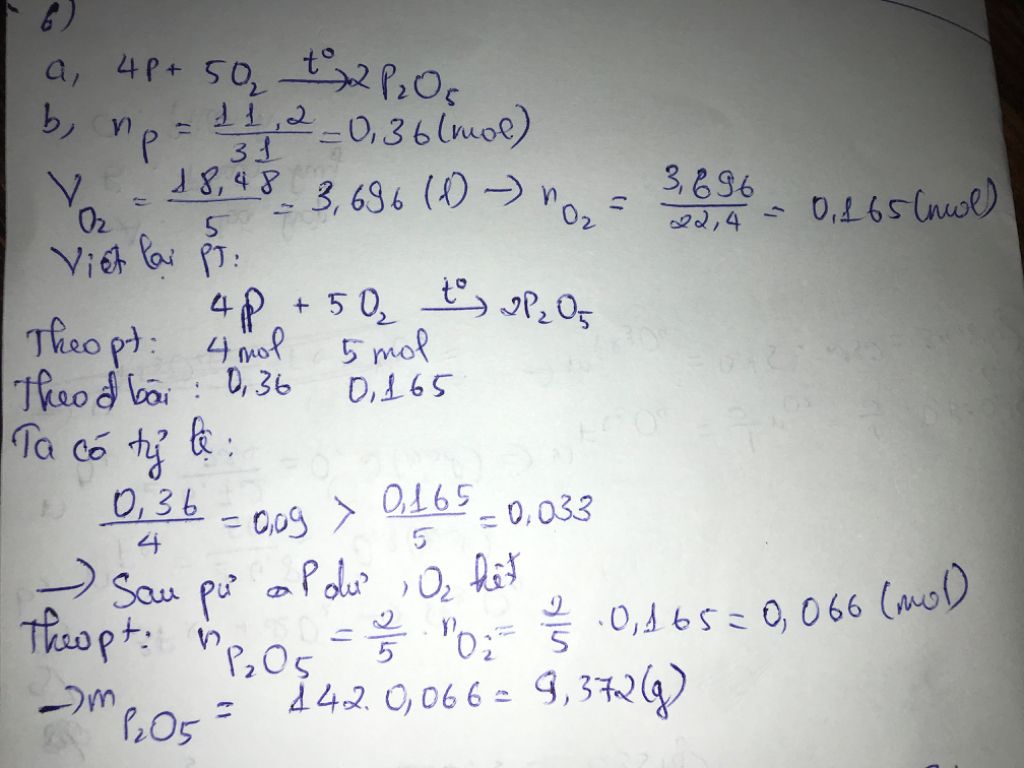 6)
a, 4P + 5O₂ t° → 2P₂O₅
b, n_P = 11,2/31 = 0,36 (mol)
V_O₂ = 18,48/5 = 3,696 (l) → n_O₂ = 3,696/22,4 = 0,165 (mol)
Viết lại PT:
4P + 5O₂ t° → 2P₂O₅
Theo pt: 4 mol 5 mol
Theo đ bài: 0,36 0,165
Ta có tỷ lệ:
0,36/4 = 0,09 > 0,165/5 = 0,033
→ Sau pứ P dư, O₂ hết
Theo pt: n_P₂O₅ = 2/5 . n_O₂ = 2/5 . 0,165 = 0,066 (mol)
→ m_P₂O₅ = 142. 0,066 = 9,372 (g)